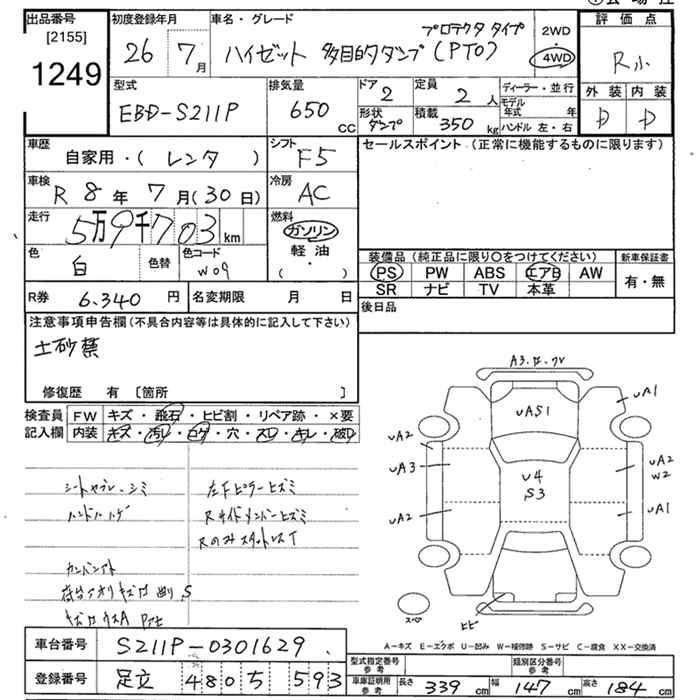 出品番号 [2155] 1249
初度登録年月 26年 7月
車名・グレード ハイゼット 多目的ダンプ(PTO) プロテクタ タイプ
2WD 4WD
評価点 R小
外装 D 内装 D
型式 EBD-S211P
排気量 650 CC
ドア 2
形状 ダンプ
定員 2 人
積載 350 kg
ディーラー・並行
モデル年式 年
ハンドル 左・右
車歴 自家用・( レンタ )
シフト F5
セールスポイント (正常に機能するものに限ります)
車検 R 8年 7月(30日)
冷房 AC
走行 5万9千703km
燃料 ガソリン 軽油 ・( ・ )
色 白 色替
色コード W09
装備品(純正品に限り○をつけてください)
PS PW ABS エアB AW
SR ナビ TV 本革
新車保証書 有・無
R券 6,340 円
名変期限 月 日
後日品
注意事項申告欄(不具合内容等は具体的に記入して下さい)
土砂禁
修復歴 有 〔箇所 〕
検査員記入欄
FW キズ・飛石・ヒビ割・リペア跡・×要
内装 キズ・汚レ・コゲ・穴・スレ・キレ・破レ
シートヤブレ・シミ
ハンドルハゲ
左Fピラーヒズミ
Rサイドメンバーヒズミ
Rのみスタットレス T
A3
UA1
UAS1
UA2
UA3
U4
S3
UA2
W2
UA2
UA1
スペア
ヒビ
A-キズ E-エクボ U-凹み W-補修跡 S-サビ C-腐食 XX-交換済
車台番号 S211P-0301629
登録番号 足立 480 う 593
型式指定番号 参考
類別区分番号 参考
車庫証明用 参考 長さ 339cm 幅 147cm 高さ 184cm